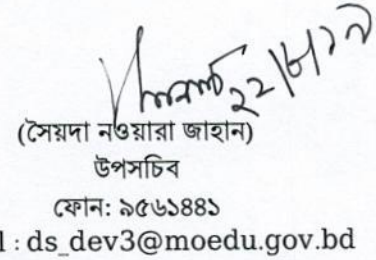 ২২/৮/১৭
(সৈয়দা নওয়ারা জাহান)
উপসচিব
ফোন: ৯৫৬১৪৪১
l : ds_dev3@moedu.gov.bd